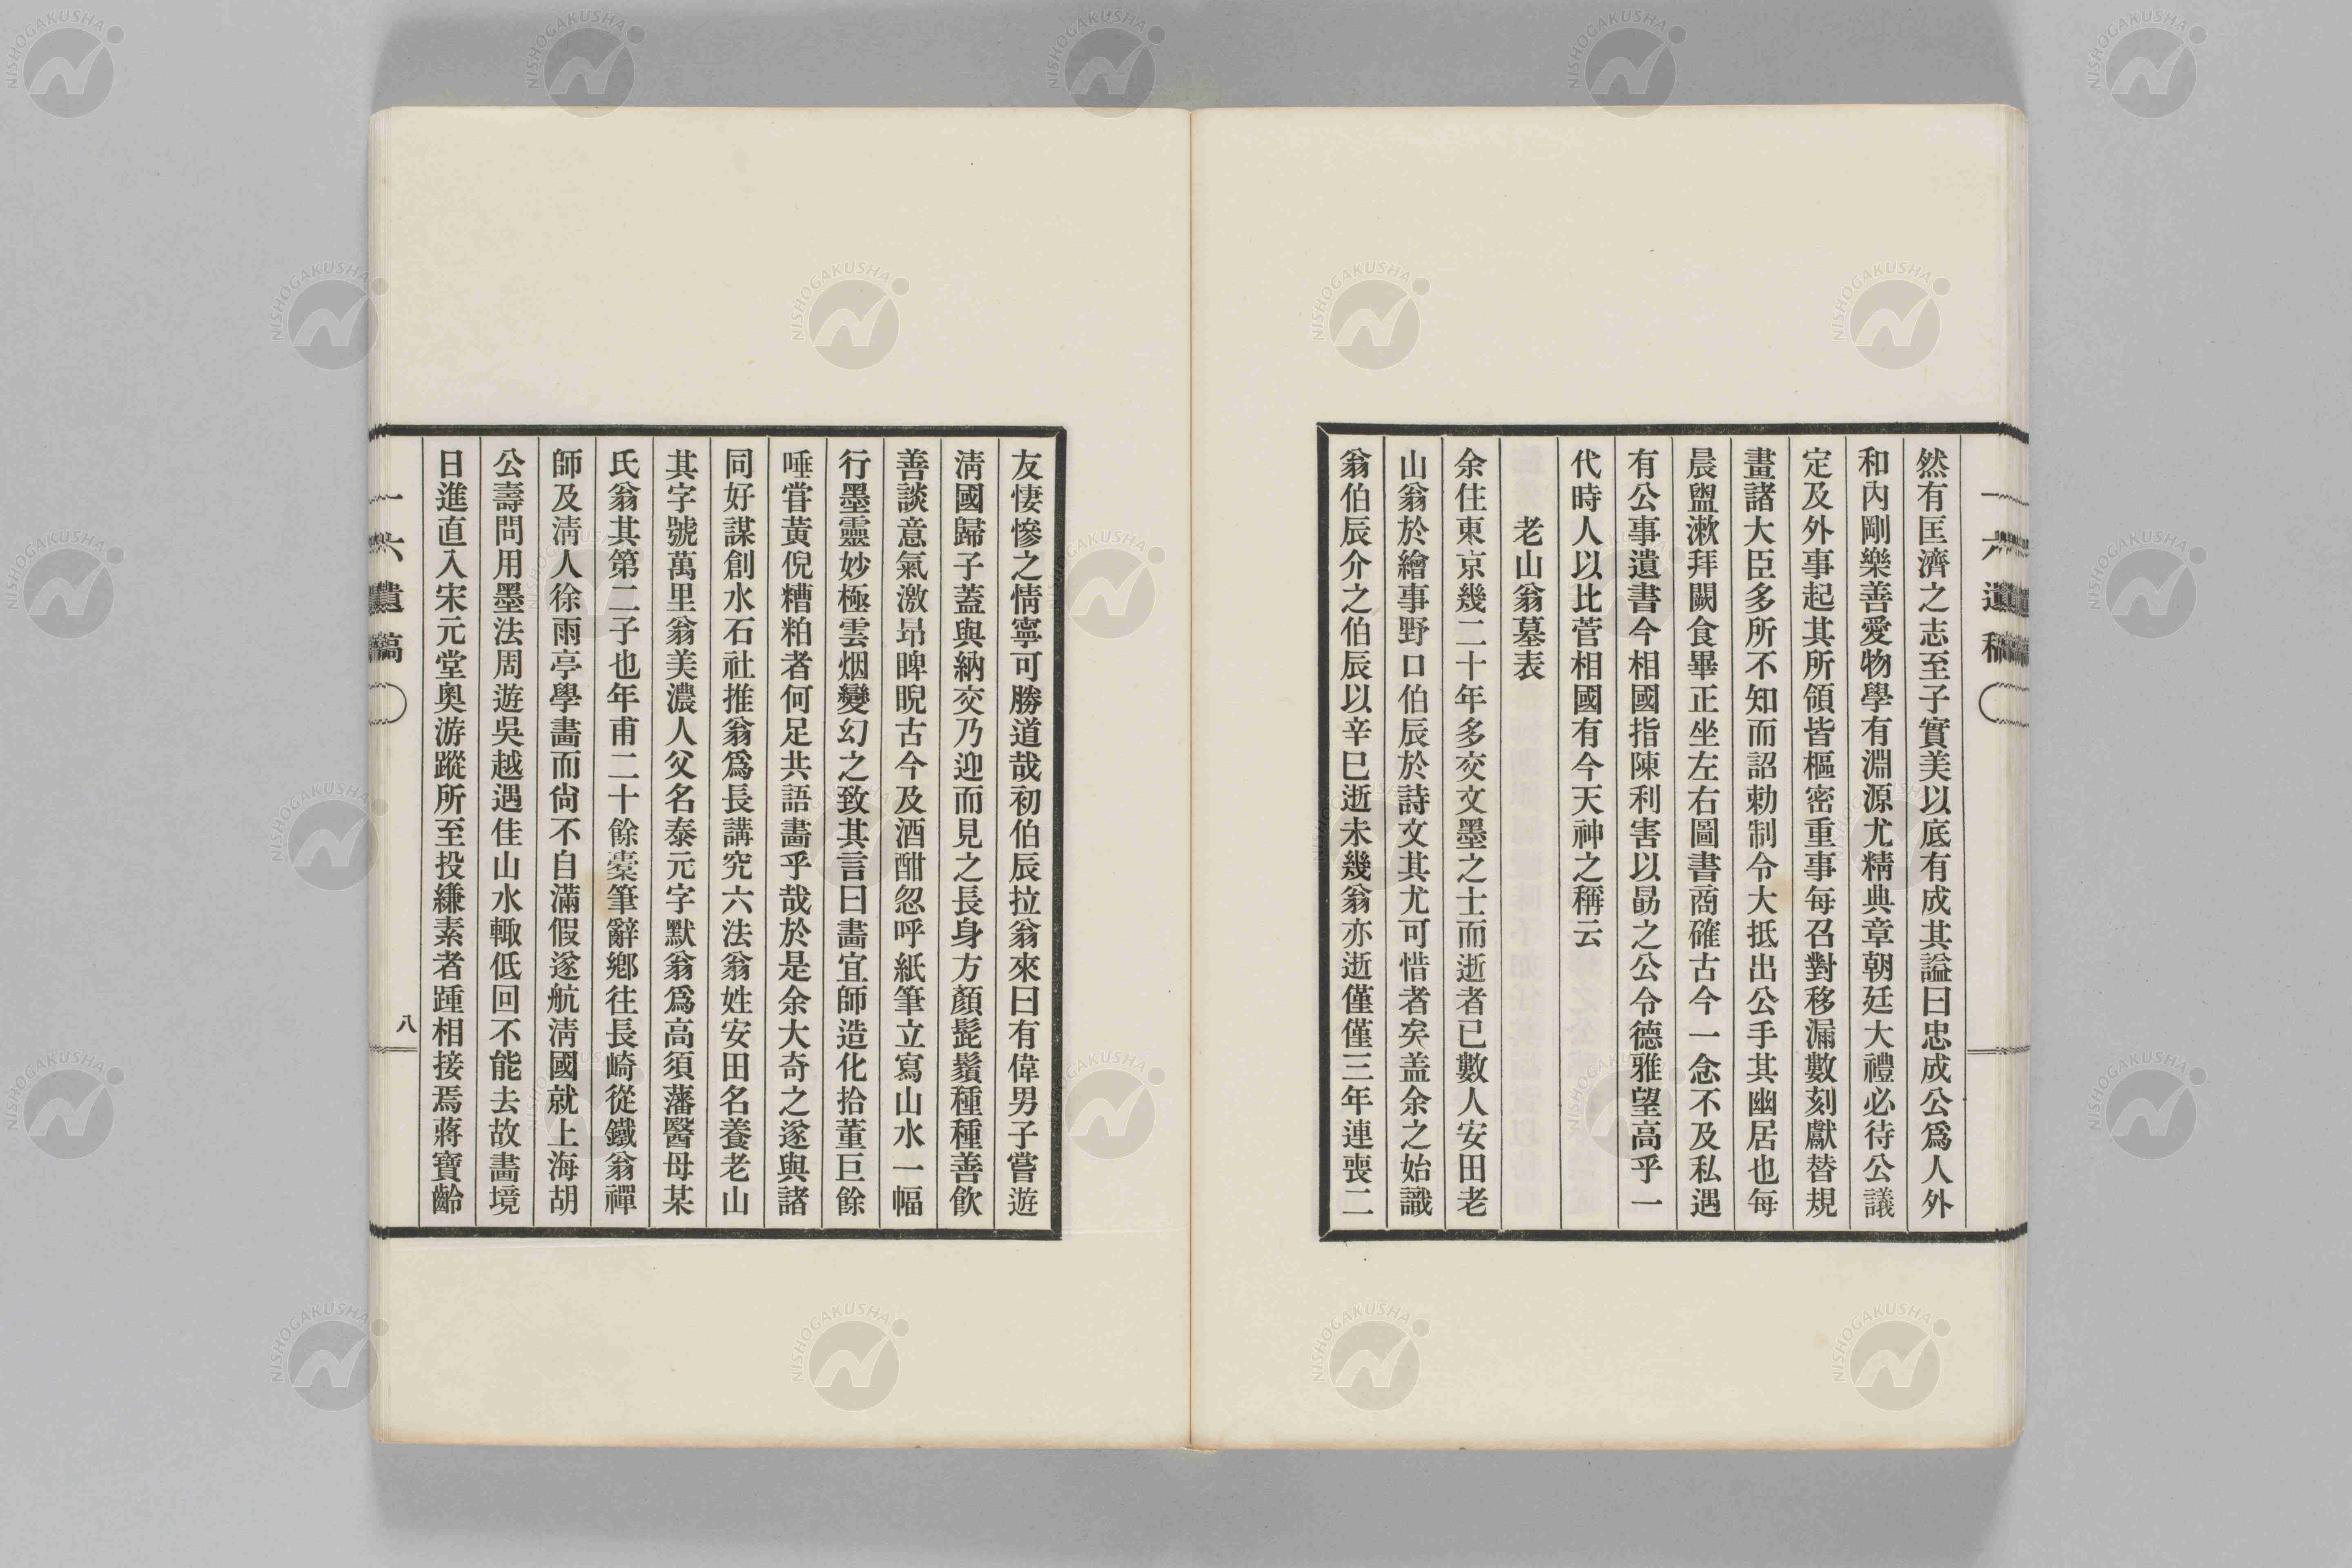 然有匡濟之志至子實美以底有成其謚曰忠成公爲人外
和內剛樂善愛物學有淵源尤精典章朝廷大禮必待公議
定及外事起其所領皆樞密重事每召對移漏數刻獻替規
畫諸大臣多所不知而詔勅制令大抵出公手其幽居也每
晨盥漱拜闕食畢正坐左右圖書商確古今一念不及私遇
有公事遺書今相國指陳利害以勗之公令德雅望高乎一
代時人以比菅相國有今天神之稱云
老山翁墓表
余住東京幾二十年多交文墨之士而逝者已數人安田老
山翁於繪事野口伯辰於詩文其尤可惜者矣盖余之始識
翁伯辰介之伯辰以辛巳逝未幾翁亦逝僅僅三年連喪二
友悽慘之情寧可勝道哉初伯辰拉翁來曰有偉男子嘗遊
淸國歸子蓋與納交乃迎而見之長身方顏髭鬚種種善飮
善談意氣激昂睥睨古今及酒酣忽呼紙筆立寫山水一幅
行墨靈妙極雲烟變幻之致其言曰畵宜師造化拾董巨餘
唾甞黃倪糟粕者何足共語畵乎哉於是余大奇之遂與諸
同好謀創水石社推翁爲長講究六法翁姓安田名養老山
其字號萬里翁美濃人父名泰元字默翁爲高須藩醫母某
氏翁其第二子也年甫二十餘橐筆辭鄕往長崎從鐵翁禪
師及淸人徐雨亭學畵而尙不自滿假遂航淸國就上海胡
公壽問用墨法周遊吳越遇佳山水輙低回不能去故畵境
日進直入宋元堂奧游蹤所至投縑素者踵相接焉蔣寶齡
一六遺稿
八
NISHOGAKUSHA